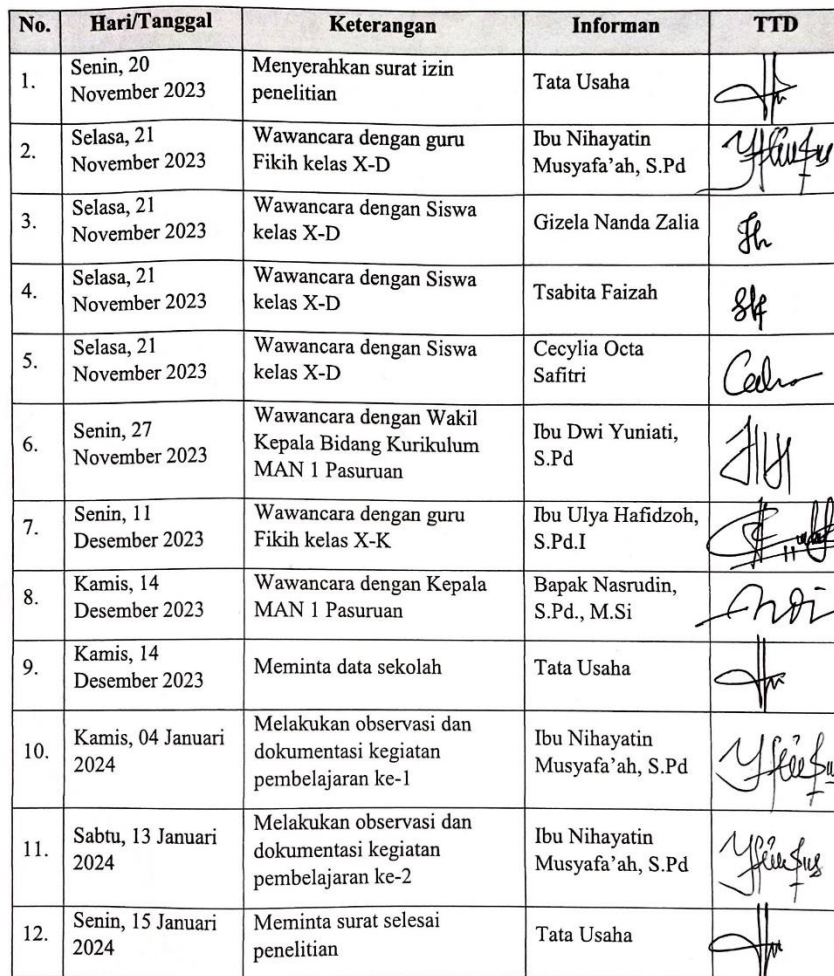 No. Hari/Tanggal Keterangan Informan TTD
1. Senin, 20 November 2023 Menyerahkan surat izin penelitian Tata Usaha
2. Selasa, 21 November 2023 Wawancara dengan guru Fikih kelas X-D Ibu Nihayatin Musyafa'ah, S.Pd
3. Selasa, 21 November 2023 Wawancara dengan Siswa kelas X-D Gizela Nanda Zalia
4. Selasa, 21 November 2023 Wawancara dengan Siswa kelas X-D Tsabita Faizah
5. Selasa, 21 November 2023 Wawancara dengan Siswa kelas X-D Cecylia Octa Safitri
6. Senin, 27 November 2023 Wawancara dengan Wakil Kepala Bidang Kurikulum MAN 1 Pasuruan Ibu Dwi Yuniati, S.Pd
7. Senin, 11 Desember 2023 Wawancara dengan guru Fikih kelas X-K Ibu Ulya Hafidzoh, S.Pd.I
8. Kamis, 14 Desember 2023 Wawancara dengan Kepala MAN 1 Pasuruan Bapak Nasrudin, S.Pd., M.Si
9. Kamis, 14 Desember 2023 Meminta data sekolah Tata Usaha
10. Kamis, 04 Januari 2024 Melakukan observasi dan dokumentasi kegiatan pembelajaran ke-1 Ibu Nihayatin Musyafa'ah, S.Pd
11. Sabtu, 13 Januari 2024 Melakukan observasi dan dokumentasi kegiatan pembelajaran ke-2 Ibu Nihayatin Musyafa'ah, S.Pd
12. Senin, 15 Januari 2024 Meminta surat selesai penelitian Tata Usaha